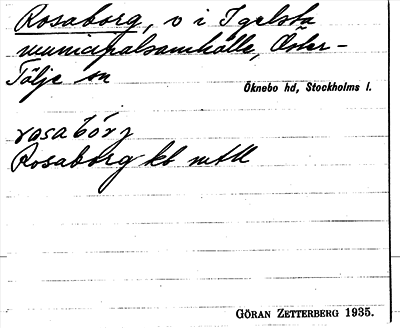 Rosaborg, v i Igelsta
municipalsamhälle, Öster-
Tälje sn
Öknebo hd, Stockholms l.
rosabórj
Rosaborg kb mtll
GÖRAN ZETTERBERG 1935.